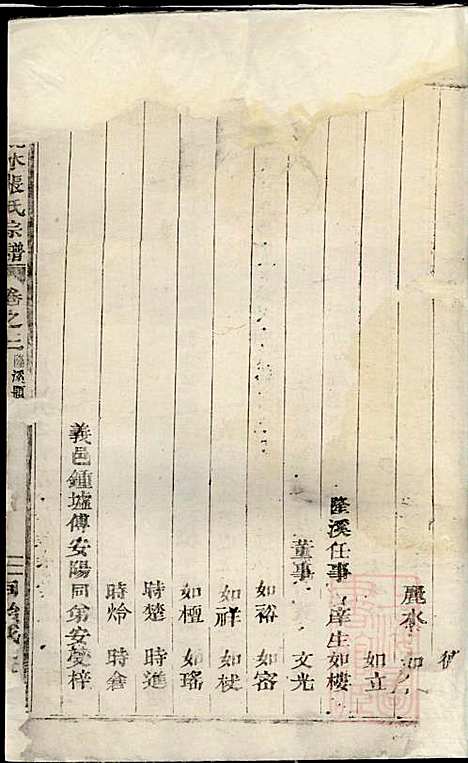 麗水 如
如立
隆溪任事 庠生如樓
董事 文光
如裕 如容
如祥 如棱
如檀 如瑤
時楚 時進
時炩 時倉
義邑鍾墟傅安陽同弟安爕梓
水張氏宗譜 卷之二 隆溪
同治